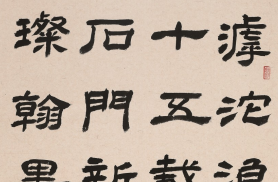 滹沱
十五載
石門新
璨翰墨